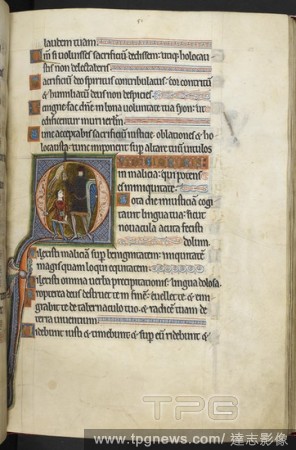 laudem tuam
Qm si voluisses sacrificiu dedissem: utiq; holocau
stis non delectaberis
Sacrificiu deo spiritus contribulatus: cor contritu
humiliatu deus non despicies
benigne fac dne in bona voluntate tua syon: ut
edificentur muri
Tunc acceptabis sacrificiu iusticie oblationes & ho
locausta: tunc imponent sup altare tuu vitulos
in malicia: qui potens
es in iniquitate
Tota die iniusticia cogi
tavit lingua tua: sicut
novacula acuta fecisti
dolum
Dilexisti maliciam sup benignitatem: iniquitate
magis quam loqui equitatem
Dilexisti omnia verba precipitationis: lingua dolosa
Propterea deus destruet te in fine: evellet te & emi
grabit te de tabernaculo tuo: & radice tuam de
terra viventium
Videbunt iusti & timebunt & sup eu ridebunt &
TPG
www.tpgnews.com / 達志影像